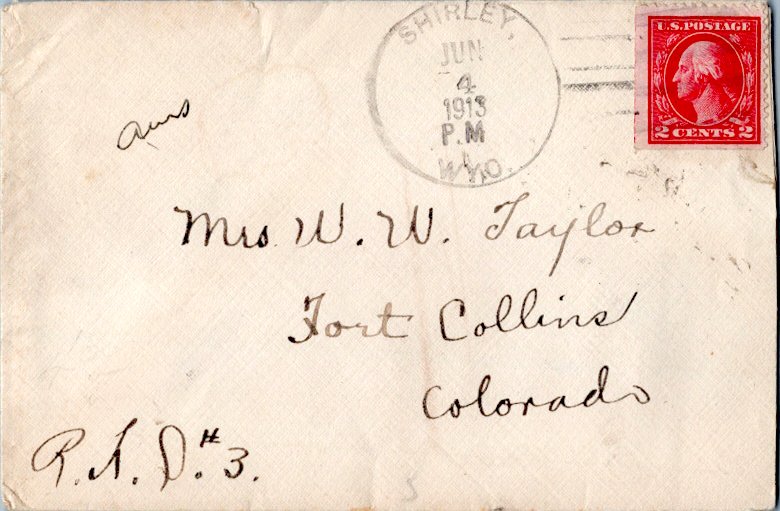 SHIRLEY,
JUN
4
1913
P.M
WYO.
U.S. POSTAGE
2 CENTS 2
Ans
Mrs. W. W. Taylor
Fort Collins
Colorado
R. F. D. #3.